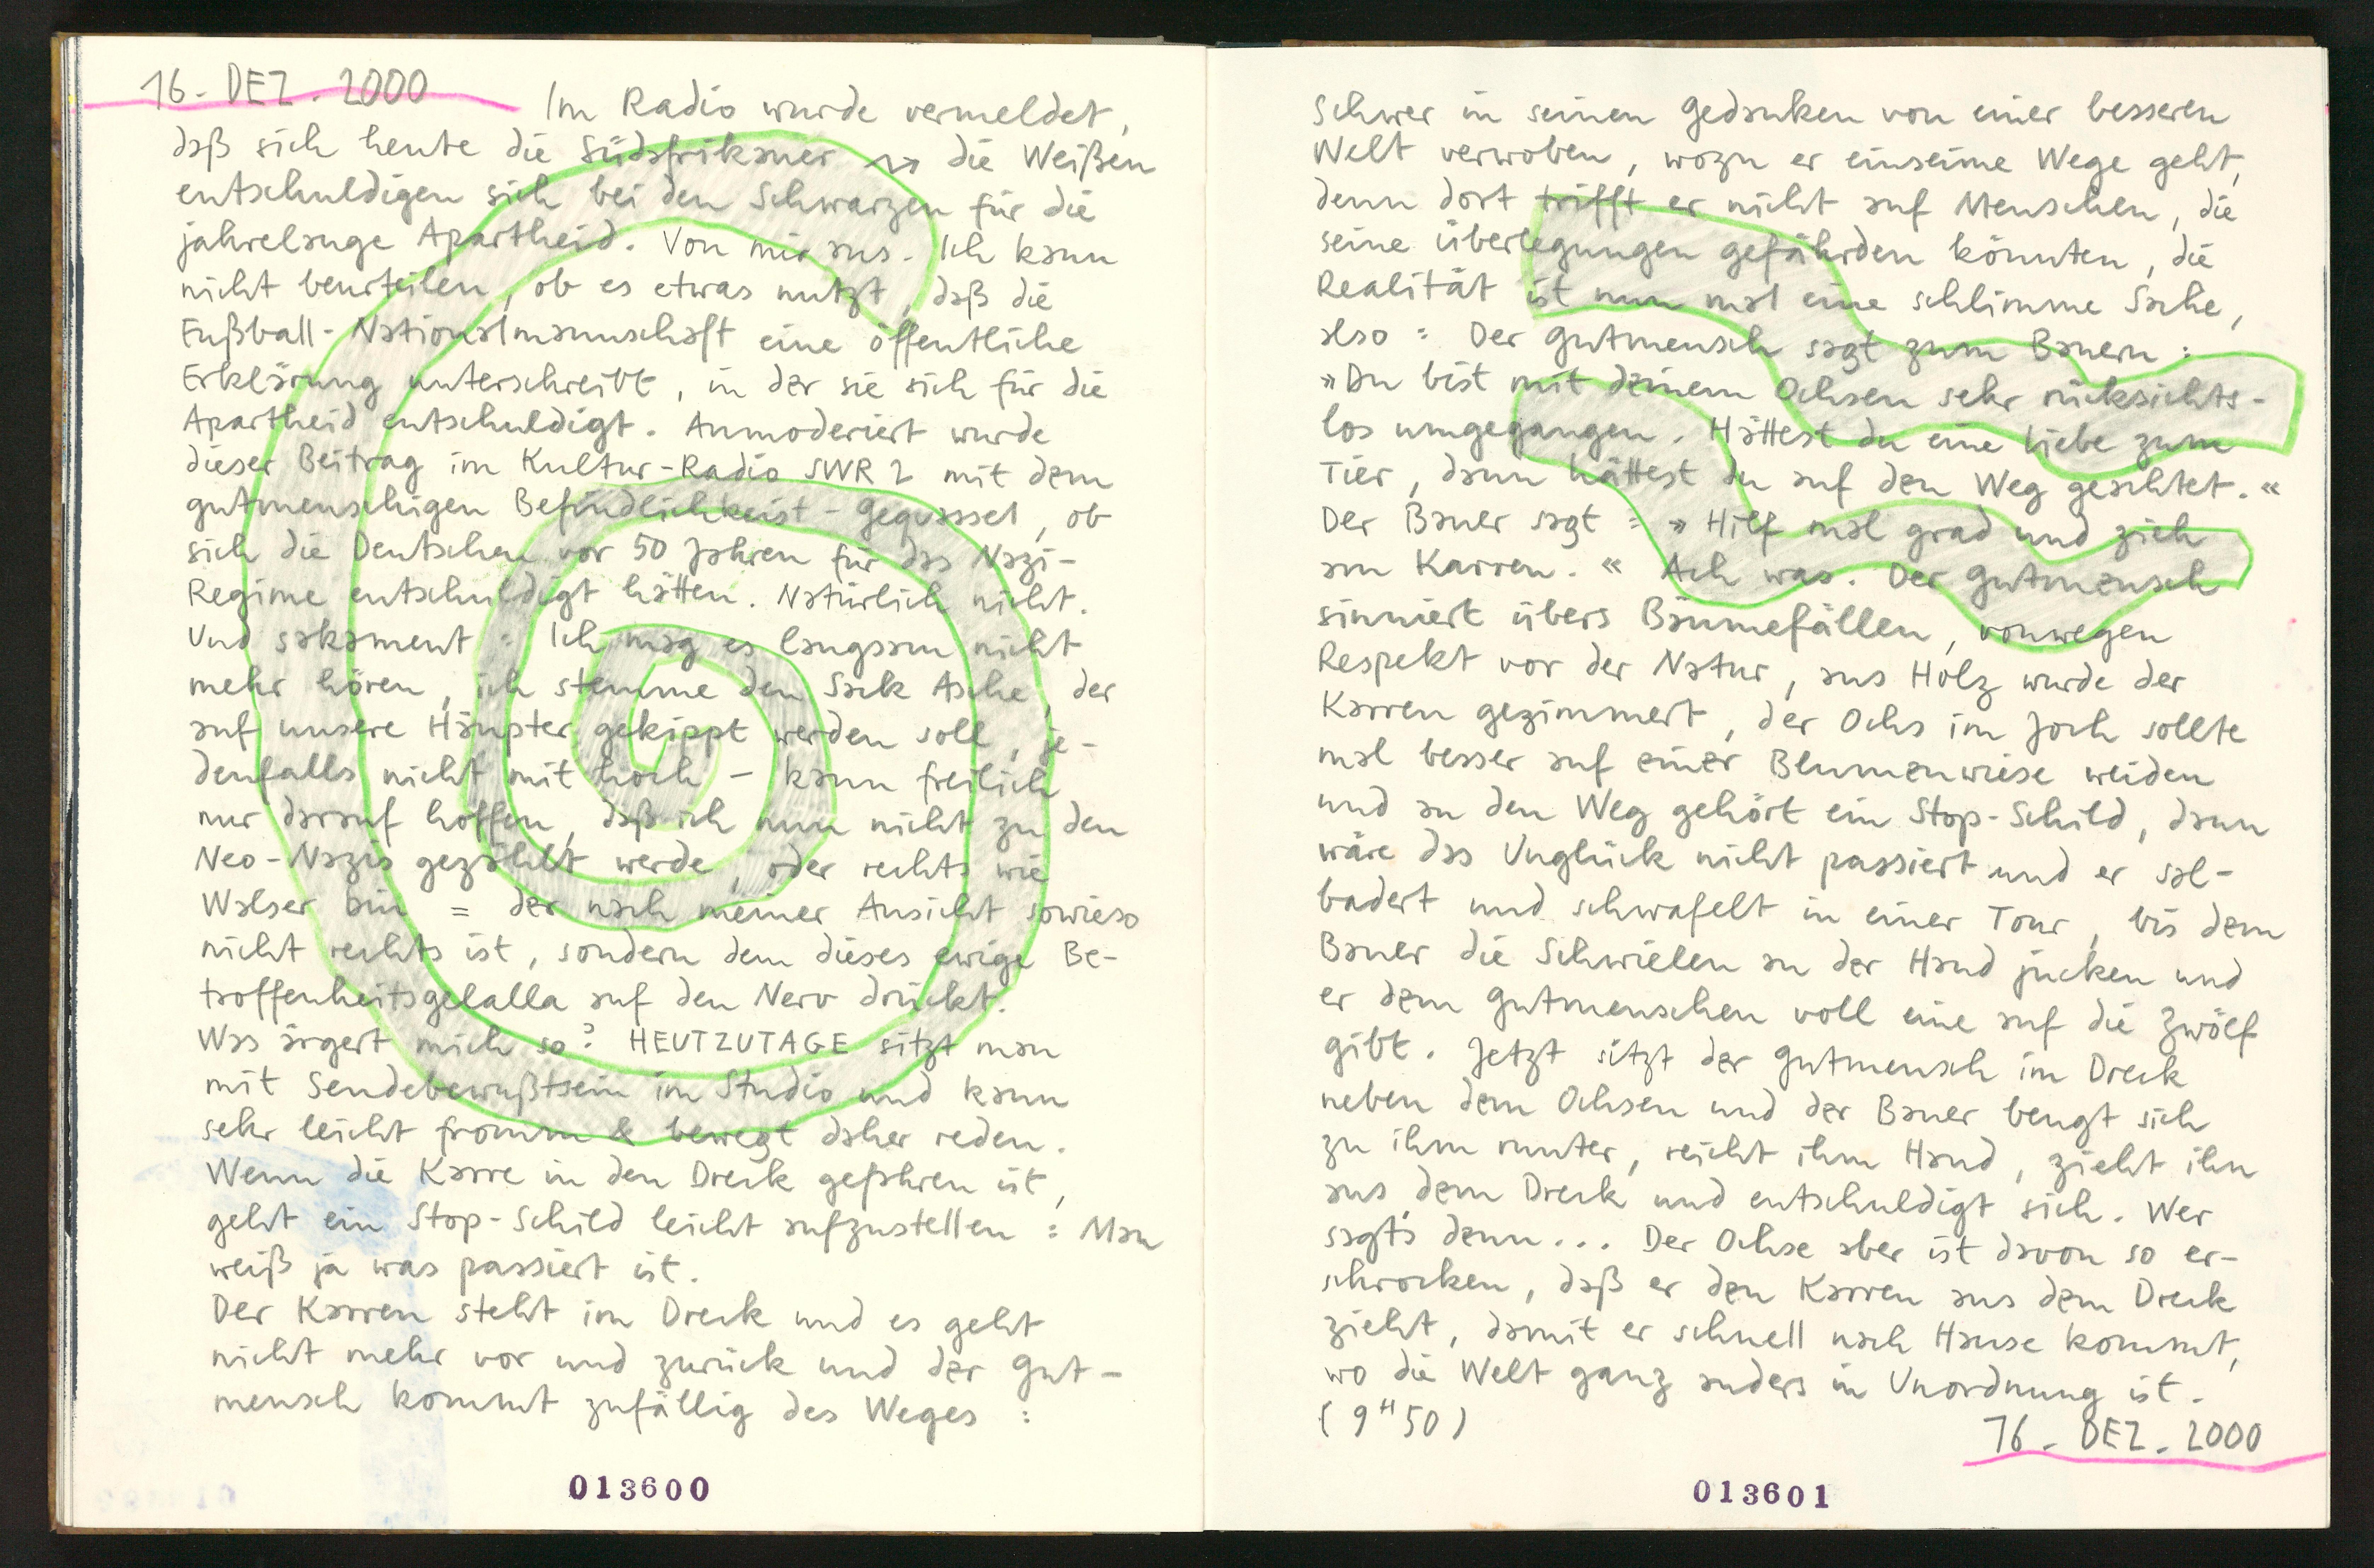 16. DEZ. 2000
Im Radio wurde vermeldet,
daß sich heute die Südafrikaner ↝ die Weißen
entschuldigen sich bei den Schwarzen für die
jahrelange Apartheid. Von mir aus. Ich kann
nicht beurteilen, ob es etwas nutzt, daß die
Fußball-Nationalmannschaft eine öffentliche
Erklärung unterschreibt, in der sie sich für die
Apartheid entschuldigt. Anmoderiert wurde
dieser Beitrag im Kultur-Radio SWR 2 mit dem
gutmenschigen Befindlichkeist-Gequassel, ob
sich die Deutschen vor 50 Jahren für das Nazi-
Regime entschuldigt hätten. Natürlich nicht.
Und sakament: Ich mag es langsam nicht
mehr hören, ich stemme den Sack Asche, der
auf unsere Häupter gekippt werden soll, je-
denfalls nicht mit hoch – kann freilich
nur darauf hoffen, daß ich nun nicht zu den
Neo-Nazis gezählt werde, oder rechts wie
Walser bin = der nach meiner Ansicht sowieso
nicht rechts ist, sondern dem dieses ewige Be-
troffenheitsgelalla auf den Nerv drückt.
Was ärgert mich so? HEUTZUTAGE sitzt man
mit Sendebewußtsein im Studio und kann
sehr leicht fromm & bewegt daher reden.
Wenn die Karre in den Dreck gefahren ist,
geht ein Stop-Schild leicht aufzustellen: Man
weiß ja was passiert ist.
Der Karren steht im Dreck und es geht
nicht mehr vor und zurück und der Gut-
mensch kommt zufällig des Weges:
013600
Schwer in seinen Gedanken von einer besseren
Welt verwoben, wozu er einseime Wege geht,
denn dort trifft er nicht auf Menschen, die
seine überlegungen gefährden könnten, die
Realität ist nun mal eine schlimme Sache,
also: Der Gutmensch sagt zum Bauern:
»Du bist mit deinem Ochsen sehr rücksichts-
los umgegangen. Hättest du eine Liebe zum
Tier, dann hättest du auf den Weg geachtet.«
Der Bauer sagt: »Hilf mal grad und zieh
am Karren.« Ach was. Der Gutmensch
sinniert übers Bäumefällen, vonwegen
Respekt vor der Natur, aus Holz wurde der
Karren gezimmert, der Ochs im Joch sollte
mal besser auf einer Blumenwiese weiden
und an den Weg gehört ein Stop-Schild, dann
wäre das Unglück nicht passiert und er sal-
badert und schwafelt in einer Tour, bis dem
Bauer die Schwielen an der Hand jucken und
er dem Gutmenschen voll eine auf die Zwölf
gibt. Jetzt sitzt der Gutmensch im Dreck
neben dem Ochsen und der Bauer beugt sich
zu ihm runter, reicht ihm Hand, zieht ihn
aus dem Dreck und entschuldigt sich. Wer
sagt's denn... Der Ochse aber ist davon so er-
schrocken, daß er den Karren aus dem Dreck
zieht, damit er schnell nach Hause kommt,
wo die Welt ganz anders in Unordnung ist.
(9ᴴ50)
16. DEZ. 2000
013601